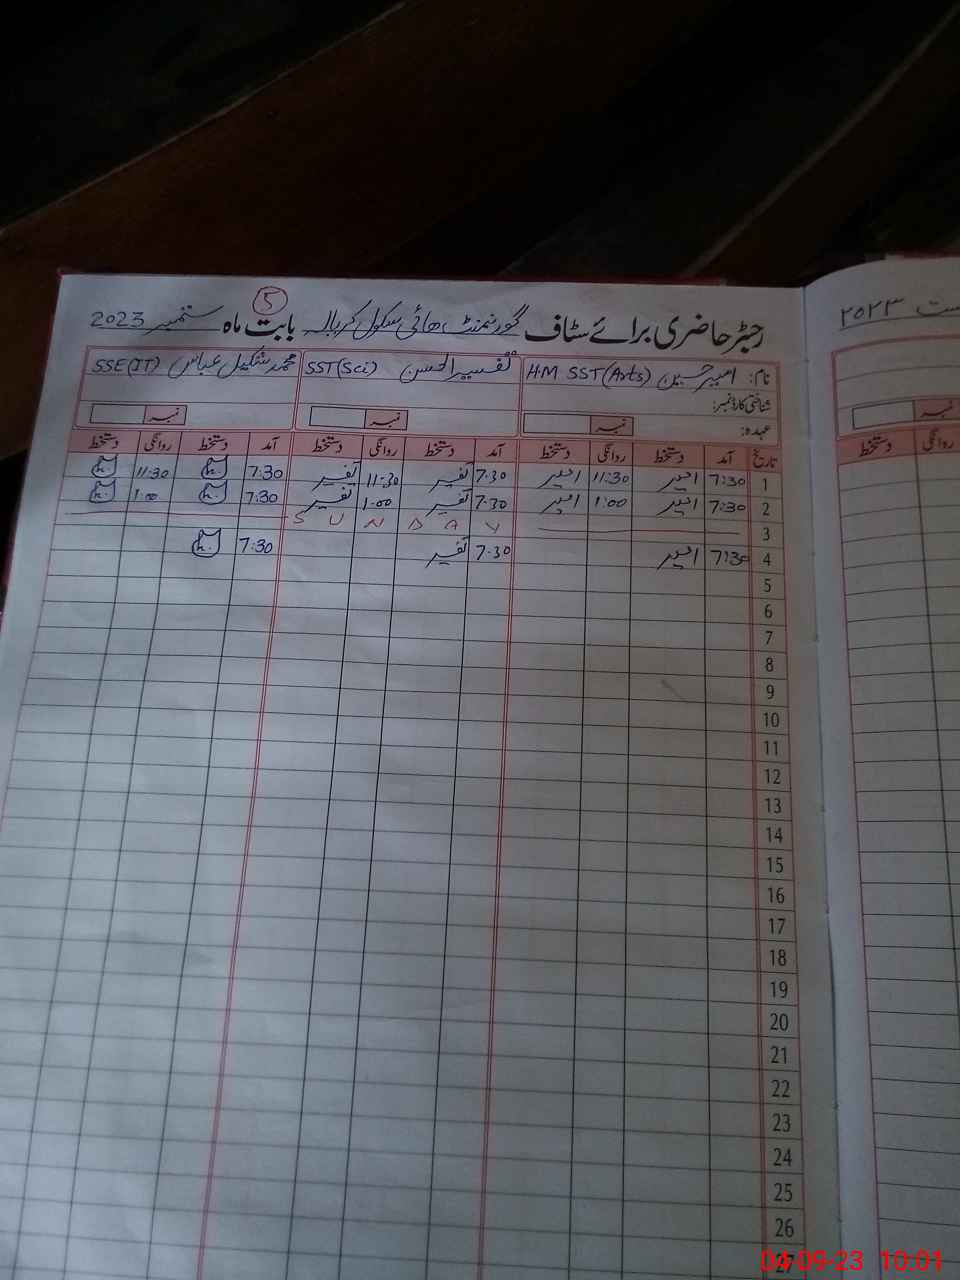 5
رجسٹر حاضری برائے سٹاف گورنمنٹ ھائی سکول کربالہ بابت ماہ ستمبر 2023
نام: امیر حسین HM SST(Arts) تفسیر الحسن SST(Sci) محمد شکیل عباس SSE(IT)
شناختی کارڈ نمبر:
عہدہ: نمبر نمبر نمبر
تاریخ آمد دستخط روانگی دستخط آمد دستخط روانگی دستخط آمد دستخط روانگی دستخط
1 7:30 امیر 11:30 امیر 7.30 تفسیر 11.30 تفسیر 7:30 11:30
2 7:30 امیر 1:00 امیر 7.30 تفسیر 1.00 تفسیر 7:30 1:00
3 SUNDAY
4 7:30 امیر 7.30 تفسیر 7:30
5
6
7
8
9
10
11
12
13
14
15
16
17
18
19
20
21
22
23
24
25
26
27
۲۰۲۳
نمبر
روانگی دستخط
04-09-23 10:01